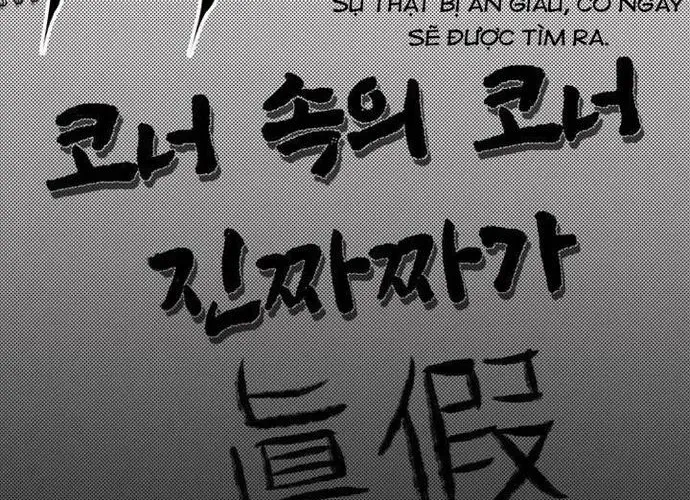 SỰ THẬT BỊ ẨN GIẤU, CÓ NGÀY
SẼ ĐƯỢC TÌM RA.
코너 속의 코너
진짜짜가
眞假